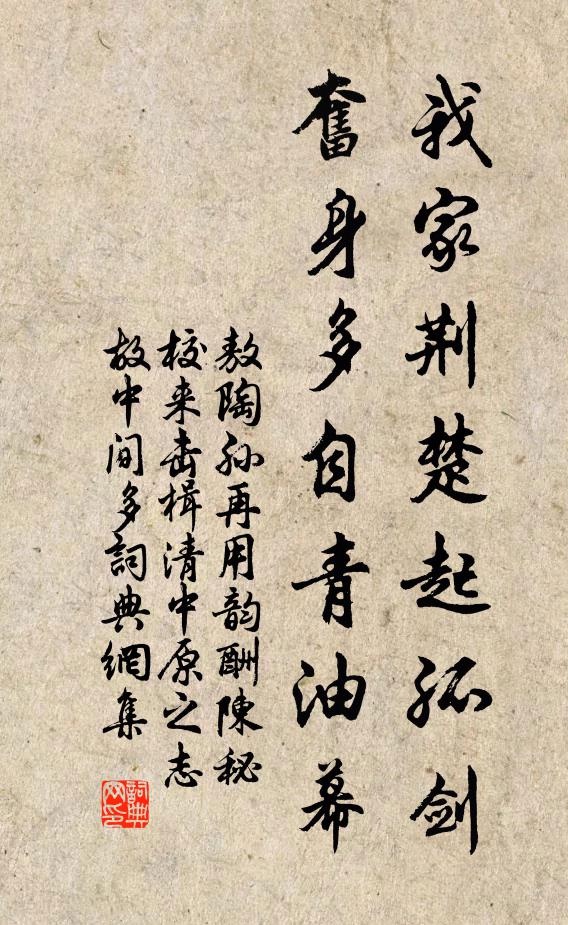 我家荆楚起孤剑
奮身多自青油幕
敖陶孙再用韵酬陳秘
校来击楫清中原之志
故中间多詞典網集
詞典
网印